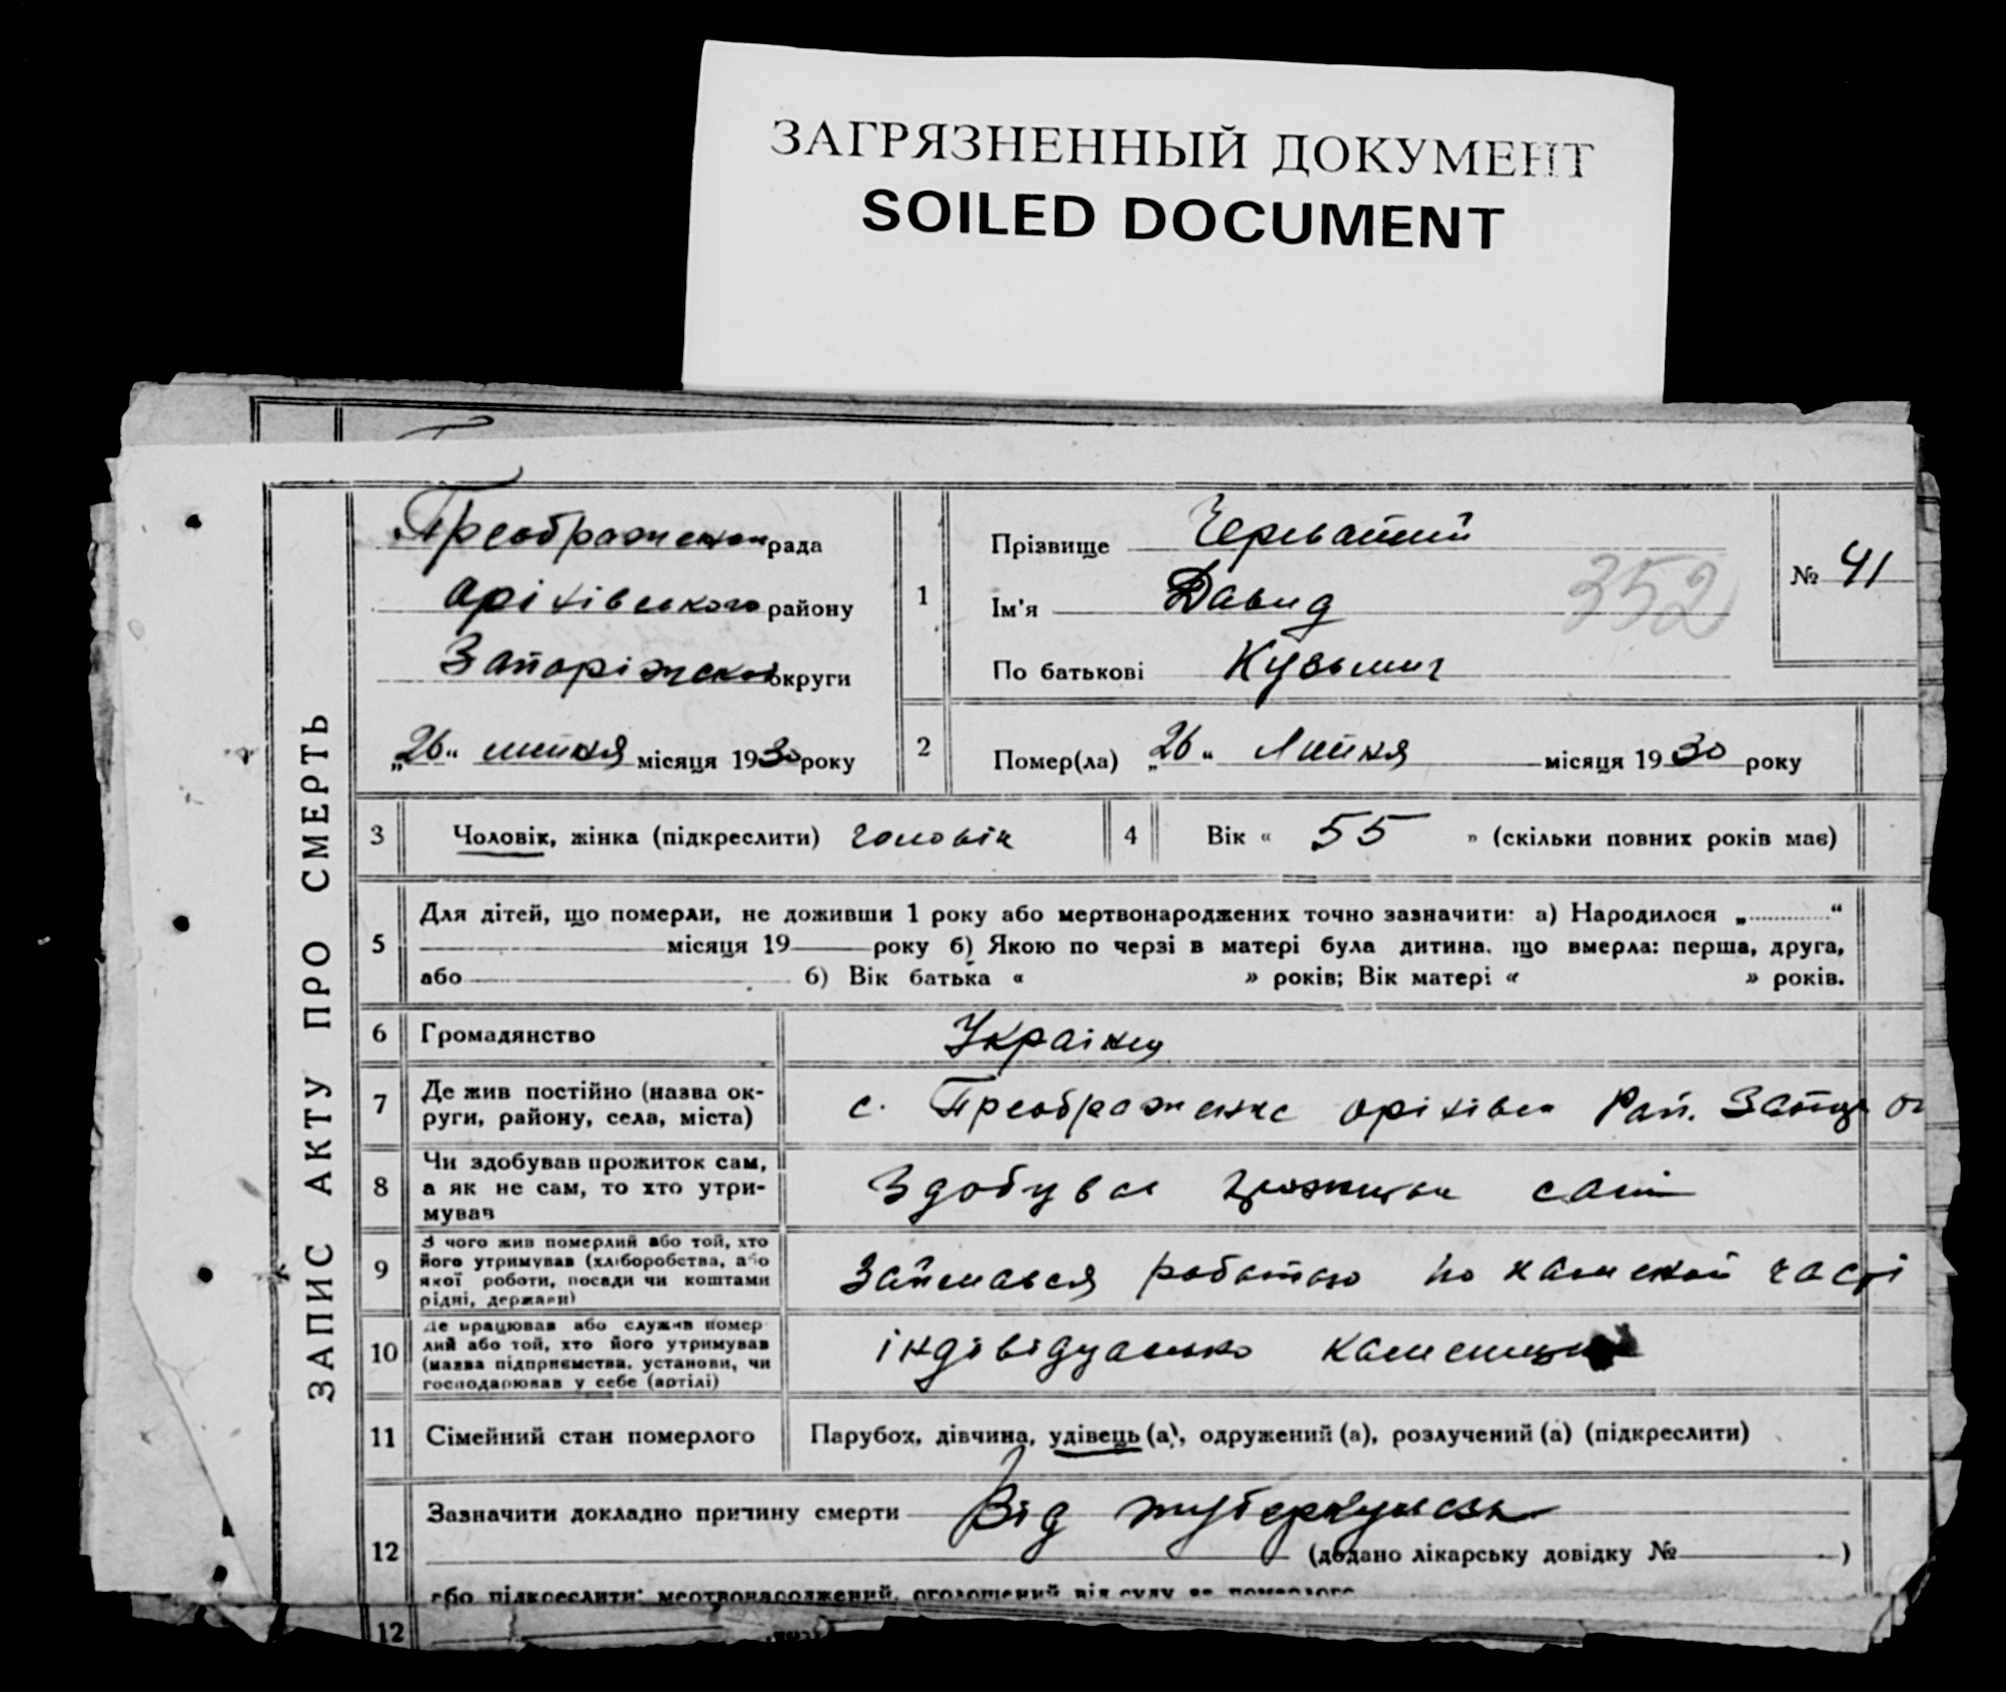 ЗАГРЯЗНЕННЫЙ ДОКУМЕНТ
SOILED DOCUMENT
ЗАПИС АКТУ ПРО СМЕРТЬ
Преображенська рада
Оріхівського району
Запоріжської округи
„26“ липня місяця 1930 року
1
Прізвище
Ім'я Давид
По батькові Кузьмич
352
№ 41
2 Помер(ла) „26“ Липня місяця 1930 року
3 Чоловік, жінка (підкреслити) чоловік
4 Вік « 55 » (скільки повних років має)
5 Для дітей, що померли, не доживши 1 року або мертвонароджених точно зазначити: а) Народилося „ “
місяця 19 року б) Якою по черзі в матері була дитина. що вмерла: перша, друга,
або б) Вік батька « » років; Вік матері « » років.
6 Громадянство Украінец
7 Де жив постійно (назва ок-
руги, району, села, міста) с. Преображенка Оріхівськ Рай.
8 Чи здобував прожиток сам,
а як не сам, то хто утри-
мував Здобував прожиток сам
9 З чого жив померлий або той, хто
його утримував (хліборобства, або
якої роботи, посади чи коштами
рідні, держави) Займався работаю по каменой часі
10 Де працював або служив помер
лий або той, хто його утримував
(назва підприємства, установи, чи
господарював у себе (артілі) індівідуально каменщик
11 Сімейний стан померлого Парубок, дівчина, удівець (а), одружений (а), розлучений (а) (підкреслити)
12 Зазначити докладно причину смерти Від туберкульоза
(додано лікарську довідку № )
або підкреслити: мертвонароджений, оголошений від суду за померлого
12